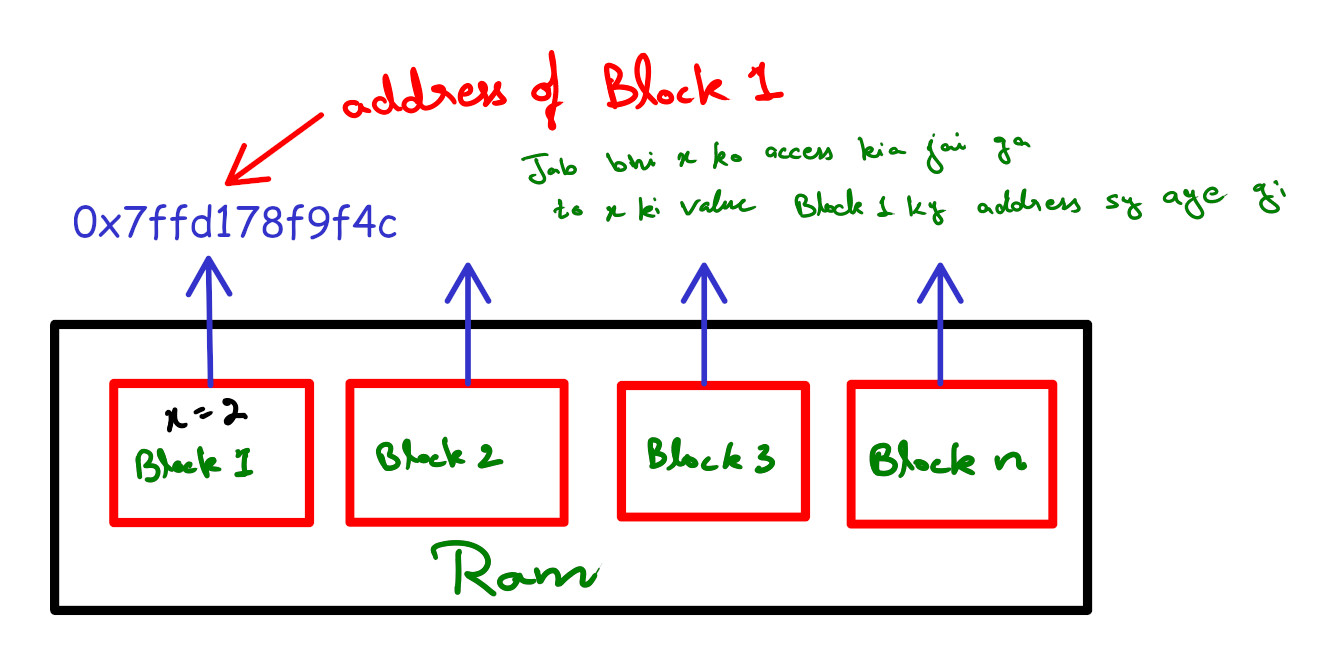 address of Block 1
Jab bhi x ko access kia jai ga
to x ki value Block 1 ky address sy aye gi
0x7ffd178f9f4c
x = 2
Block 1
Block 2
Block 3
Block n
Ram